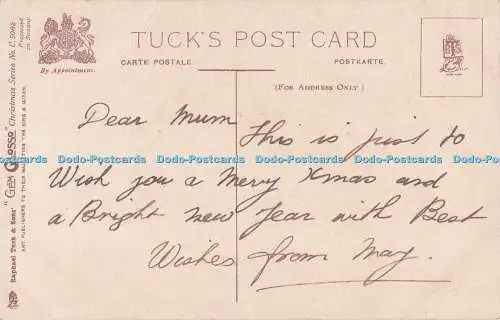 TUCK'S POST CARD
CARTE POSTALE.
POSTKARTE.
(FOR ADDRESS ONLY)
By Appointment.
Raphael Tuck & Sons' "GEM GLOSSO" Christmas Series No. C.
ART PUBLISHERS TO THEIR MAJESTIES THE KING & QUEEN.
Dear Mum
This is just to
Wish you a Merry Xmas and
a Bright new Year with Best
Wishes from May.
Dodo-Postcards Dodo-Postcards Dodo-Postcards Dodo-Postcards Dodo-Postcards Dodo-Postcards